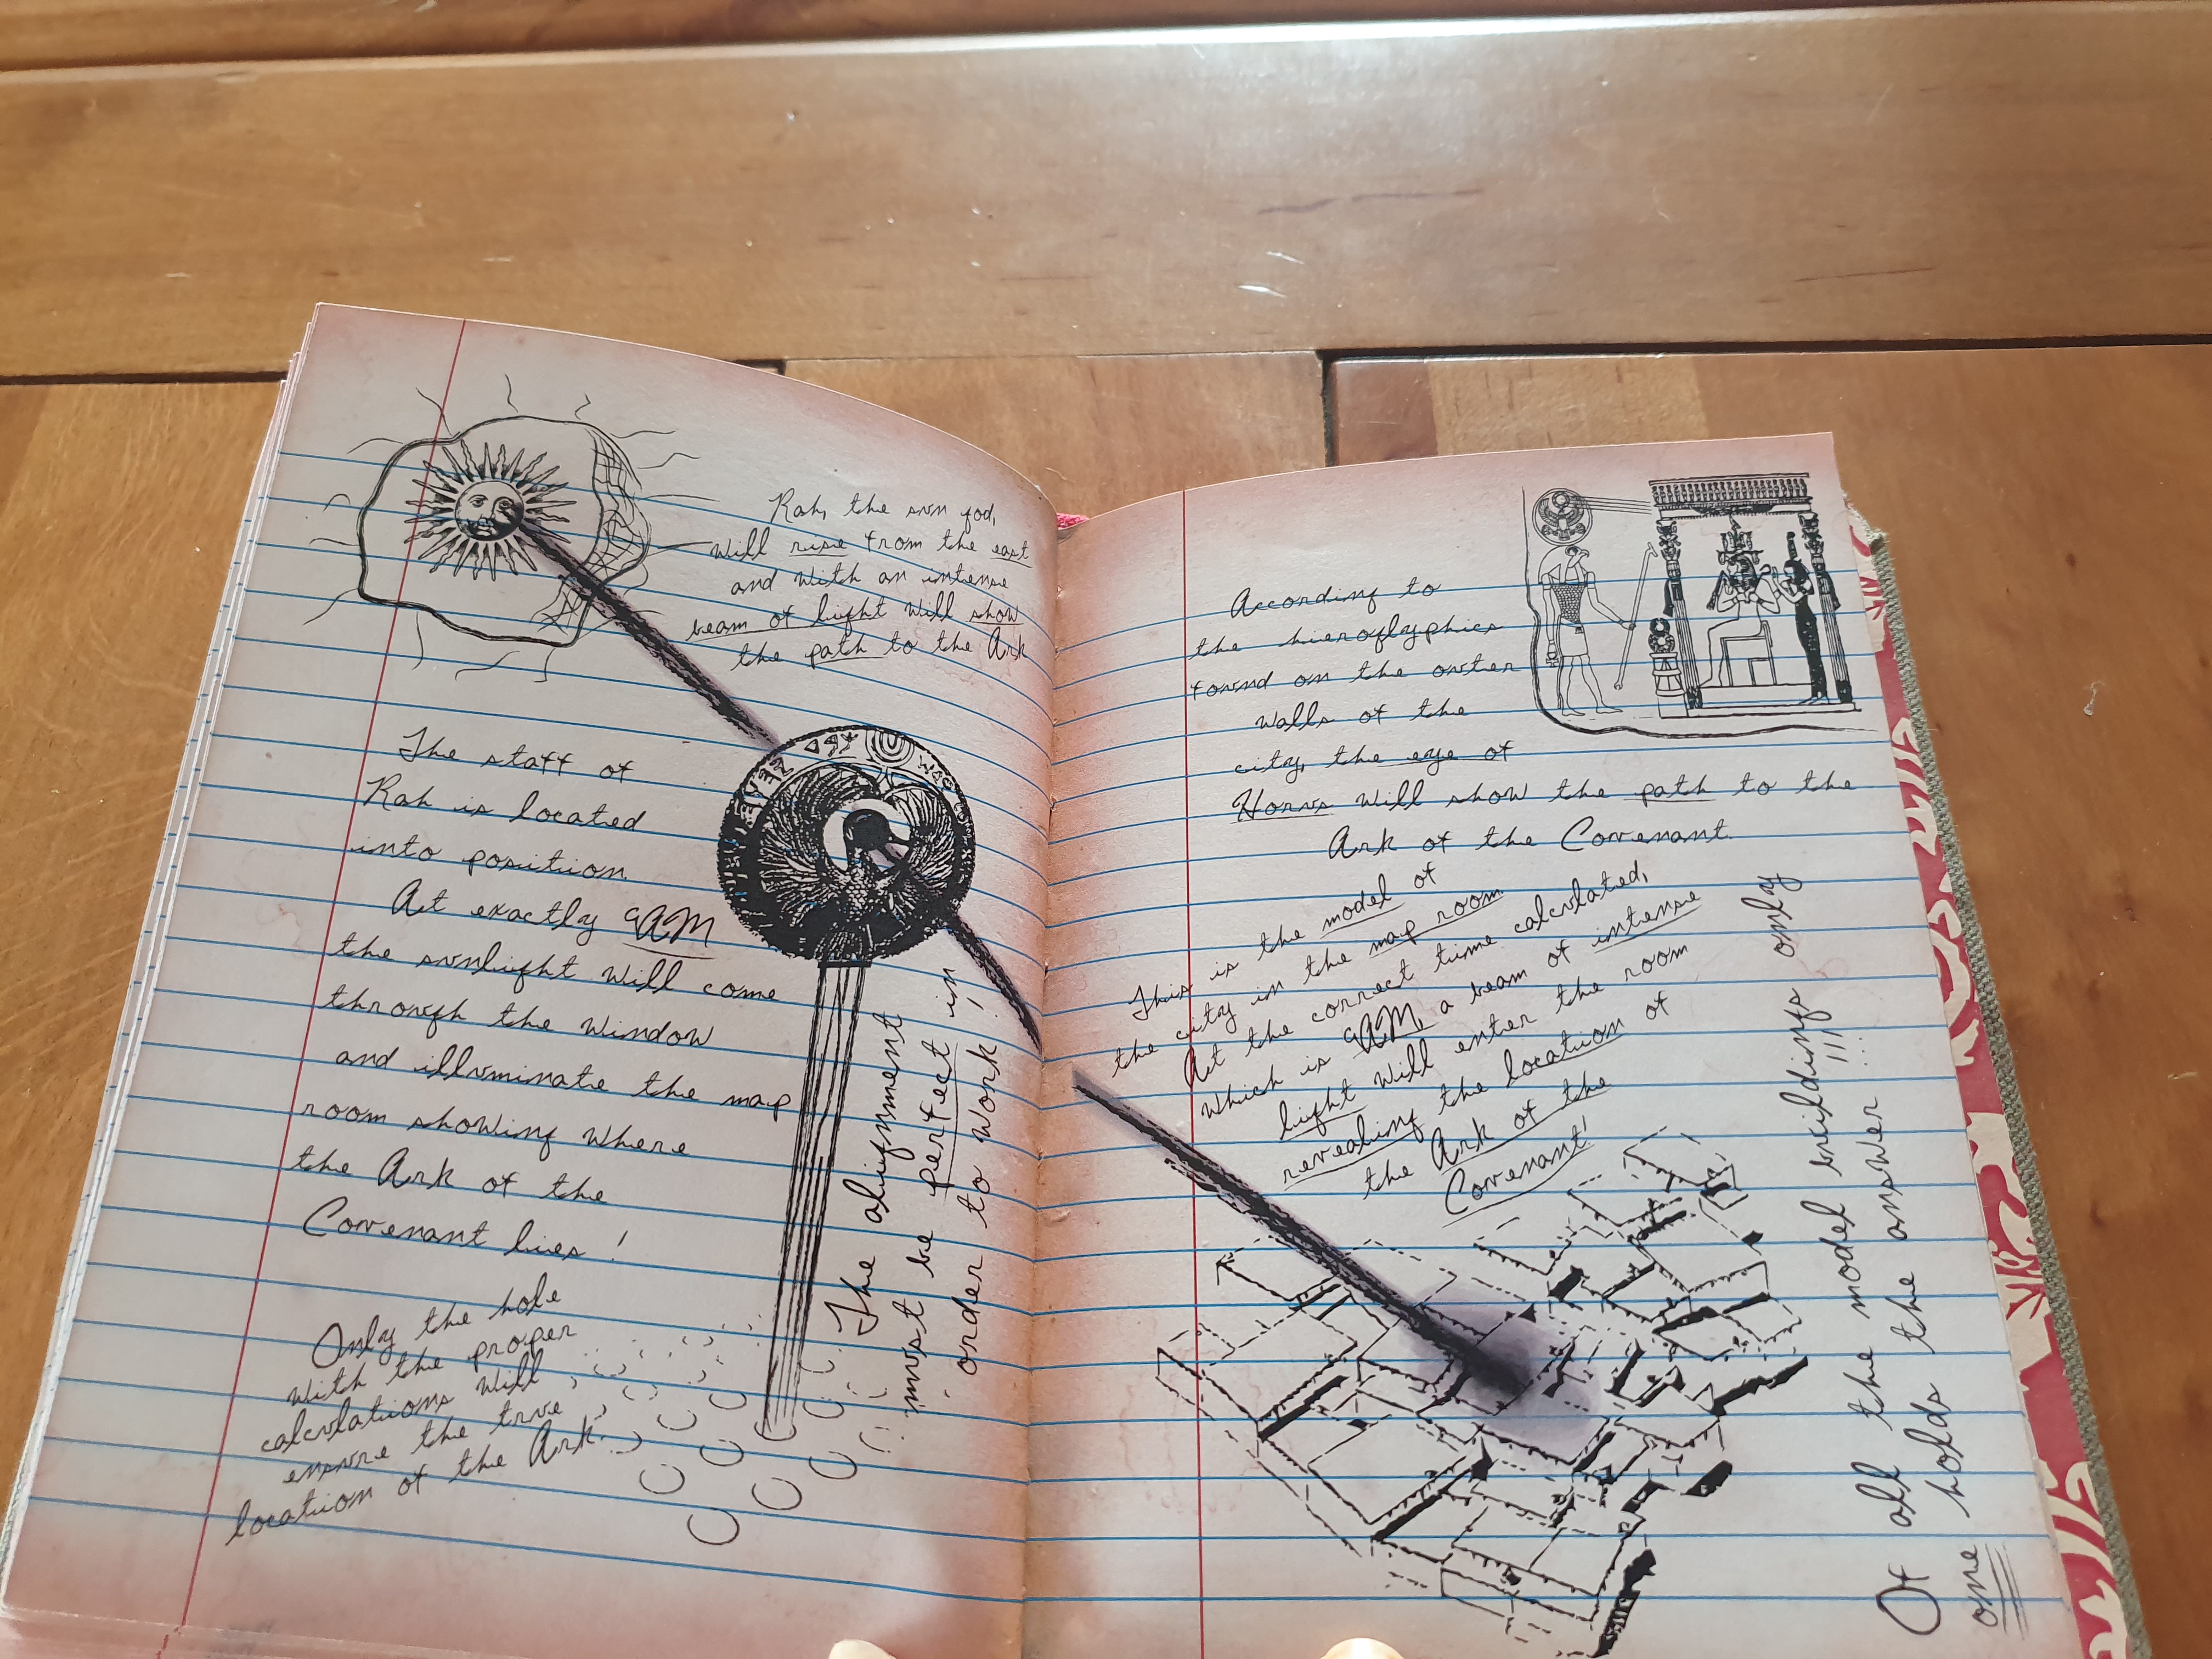 Rah, the sun god,
will rise from the east
and with an intense
beam of light will show
the path to the Ark
The staff of
Rah is located
into position.
At exactly 9AM
the sunlight will come
through the window
and illuminate the map
room showing where
the Ark of the
Covenant lies!
Only the hole
with the proper
calculations will
ensure the true
location of the Ark.
The alignment
must be perfect in
order to work!
According to
the hieroglyphics
found on the outer
walls of the
city, the eye of
Horus will show the path to the
Ark of the Covenant.
This is the model of
the city in the map room.
At the correct time calculated,
which is 9AM, a beam of intense
light will enter the room
revealing the location of
the Ark of the
Covenant!
Of all the model buildings only
one holds the answer!!!